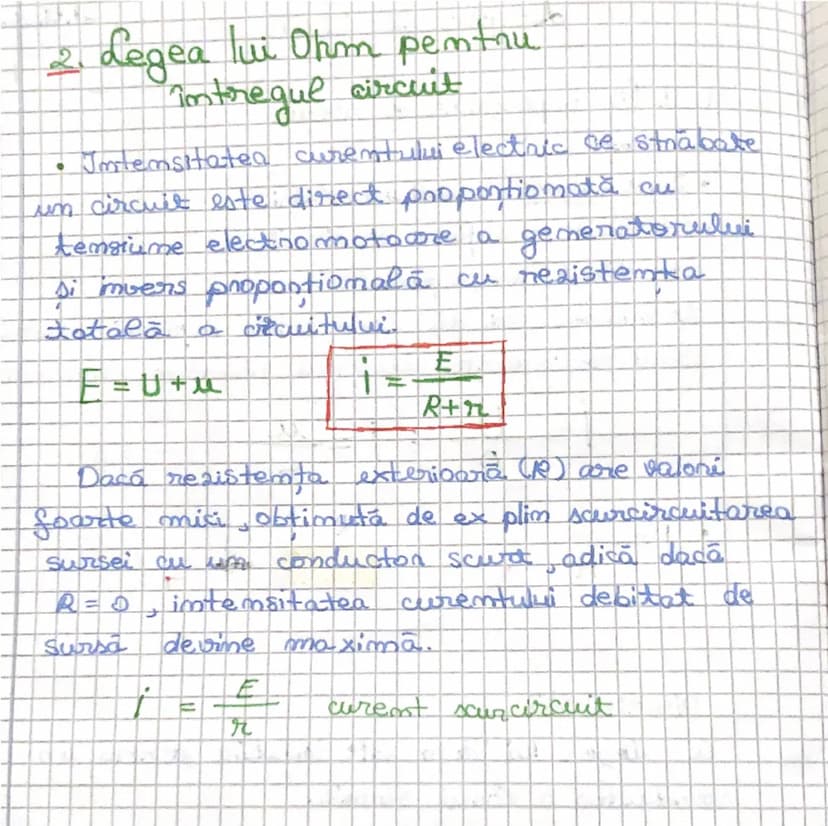 2. Legea lui Ohm pentru
întregul circuit
• Intensitatea curentului electric ce străbate
un circuit este direct proporțională cu
tensiune electromotoare a generatorului
și invers proporțională cu rezistența
totală a circuitului.
E = U + u
i = E / R + r
Dacă rezistența exterioară (R) are valori
foarte mici, obținută de ex plin scurcircuitarea
sursei cu un conductor scurt, adică dacă
R = 0, intensitatea curentului debitat de
sursă devine maximă.
i = E / r curent scurcircuit